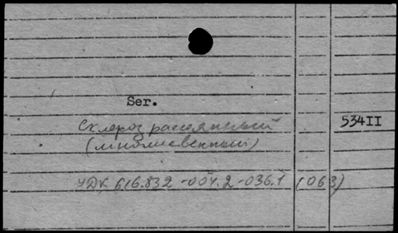 Ser.
Склероз рассеянный
534II
(множественный)
УДК 616.832-004.2-036.1 (063)